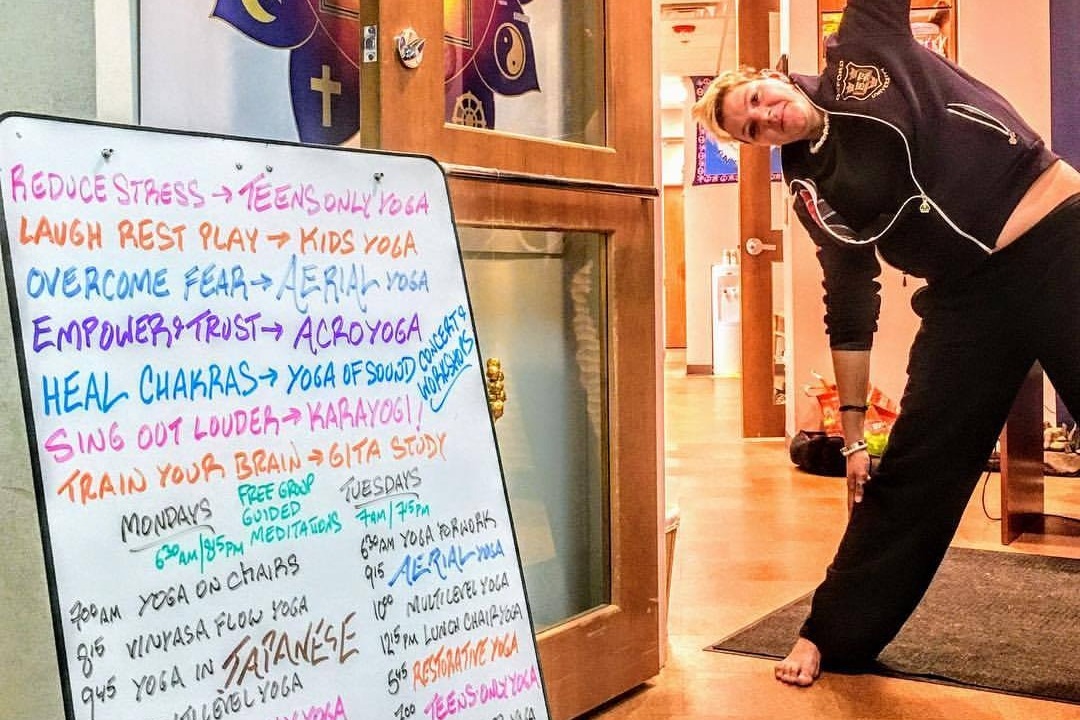 REDUCE STRESS → TEENS ONLY YOGA
LAUGH REST PLAY → KIDS YOGA
OVERCOME FEAR → AERIAL YOGA
EMPOWER & TRUST → ACROYOGA
HEAL CHAKRAS → YOGA OF SOUND CONCERT & WORKSHOPS
SING OUT LOUDER → KARAYOGI!
TRAIN YOUR BRAIN → GITA STUDY
MONDAYS
630AM/8:15PM
FREE GROUP
GUIDED
MEDITATIONS
TUESDAYS
7AM/7:15PM
700AM YOGA ON CHAIRS
8:15 VINYASA FLOW YOGA
9:45 YOGA IN JAPANESE
LEVEL YOGA
YOGA
6:30AM YOGA FOR WORK
9:15 AERIAL YOGA
1000 MULTILEVEL YOGA
12:15PM LUNCH CHAIR YOGA
5:45 RESTORATIVE YOGA
700 TEENS ONLY YOGA
YOGA